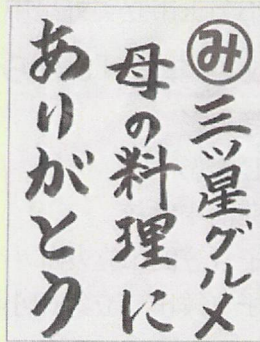 み 三ツ星グルメ
母の料理に
ありがとう